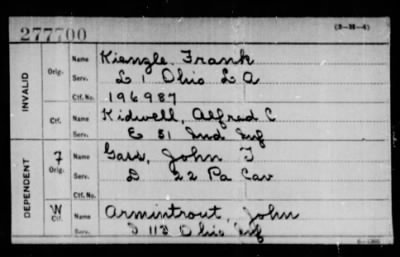 277700
(3-H-4)
INVALID
Orig.
Name Kienzle, Frank
Serv. L 1 Ohio L A
Ctf. No. 196987
Ctf.
Name Kidwell, Alfred C
Serv. E 81 Ind Inf
DEPENDENT
F
Orig.
Name John T
Serv. D 22 Pa Cav
Ctf. No.
W
Ctf.
Name Armintrout, John
113 Ohio Inf